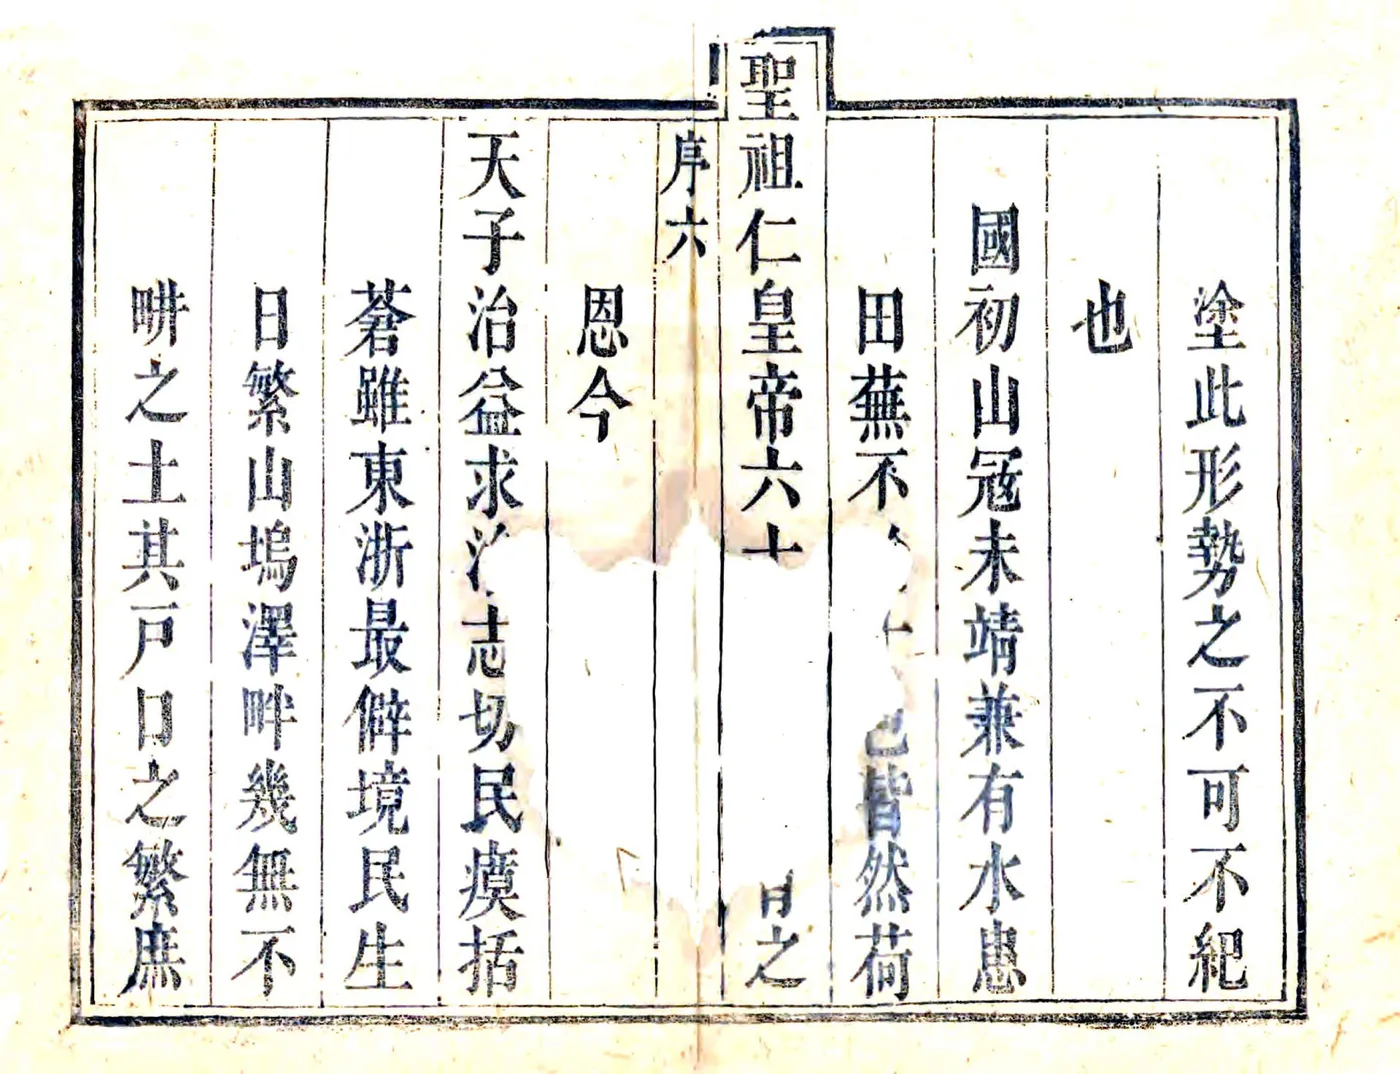 塗此形勢之不可不紀
也
國初山冦未靖兼有水患
田蕪不皆然荷
聖祖仁皇帝六十之
序六
恩今
天子治益求治志切民瘼括
蒼雖東浙最僻境民生
日繁山塢澤畔幾無不
畊之土其戸口之繁庶